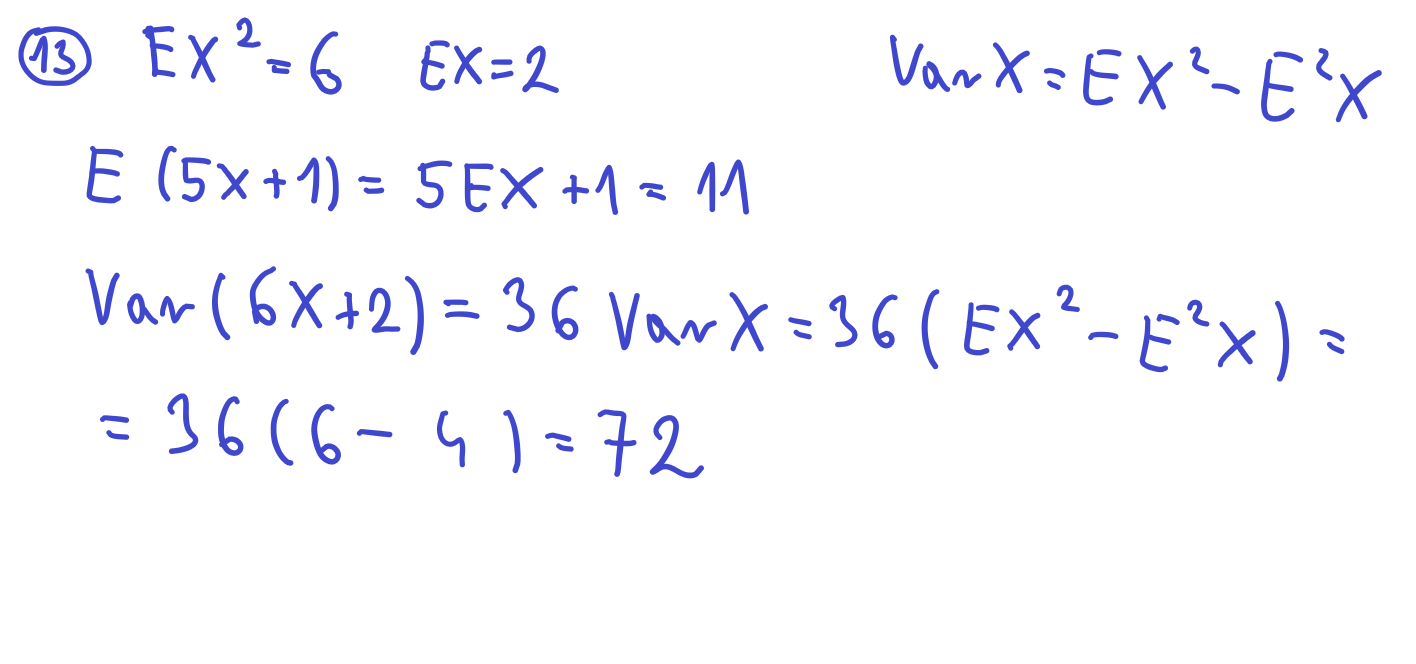 13 EX² = 6 EX = 2 Var X = EX² - E²X
E (5x + 1) = 5EX + 1 = 11
Var (6X + 2) = 36 Var X = 36 (EX² - E²X) =
= 36 (6 - 4) = 72